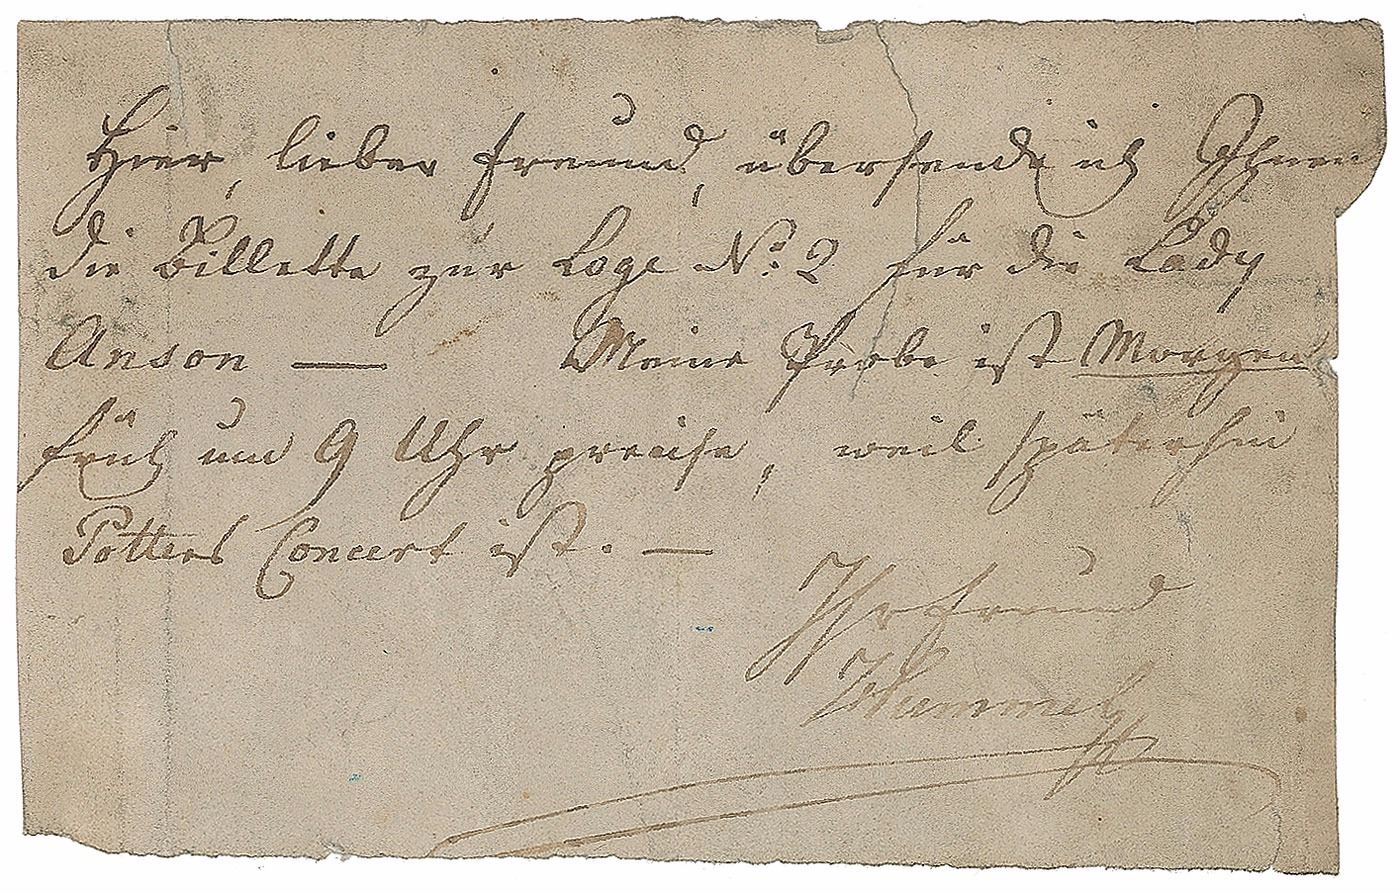 Hier, lieber Freund, übersende ich Ihnen
die Billette zur Loge No: 2 für die Lady
Anson — Meine Probe ist Morgen
früh um 9 Uhr precise, weil späterhin
Potters Concert ist. —
Ihr Freund
Hummel